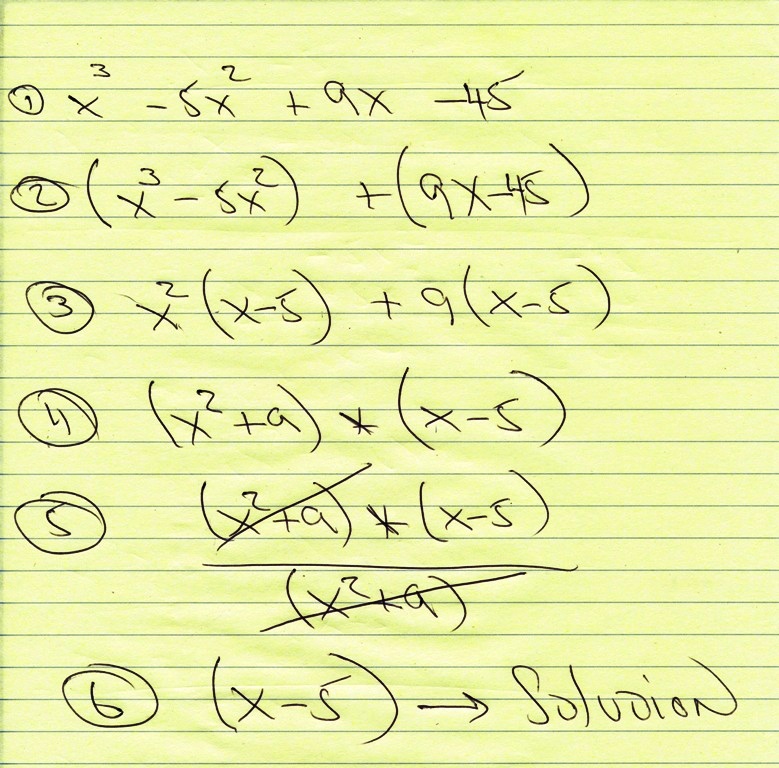 ① x³ - 5x² + 9x - 45
② (x³ - 5x²) + (9x-45)
③ x² (x-5) + 9(x-5)
④ (x² + 9) * (x-5)
⑤ (x² + 9) * (x-5)
(x² + 9)
⑥ (x-5) → Soludion